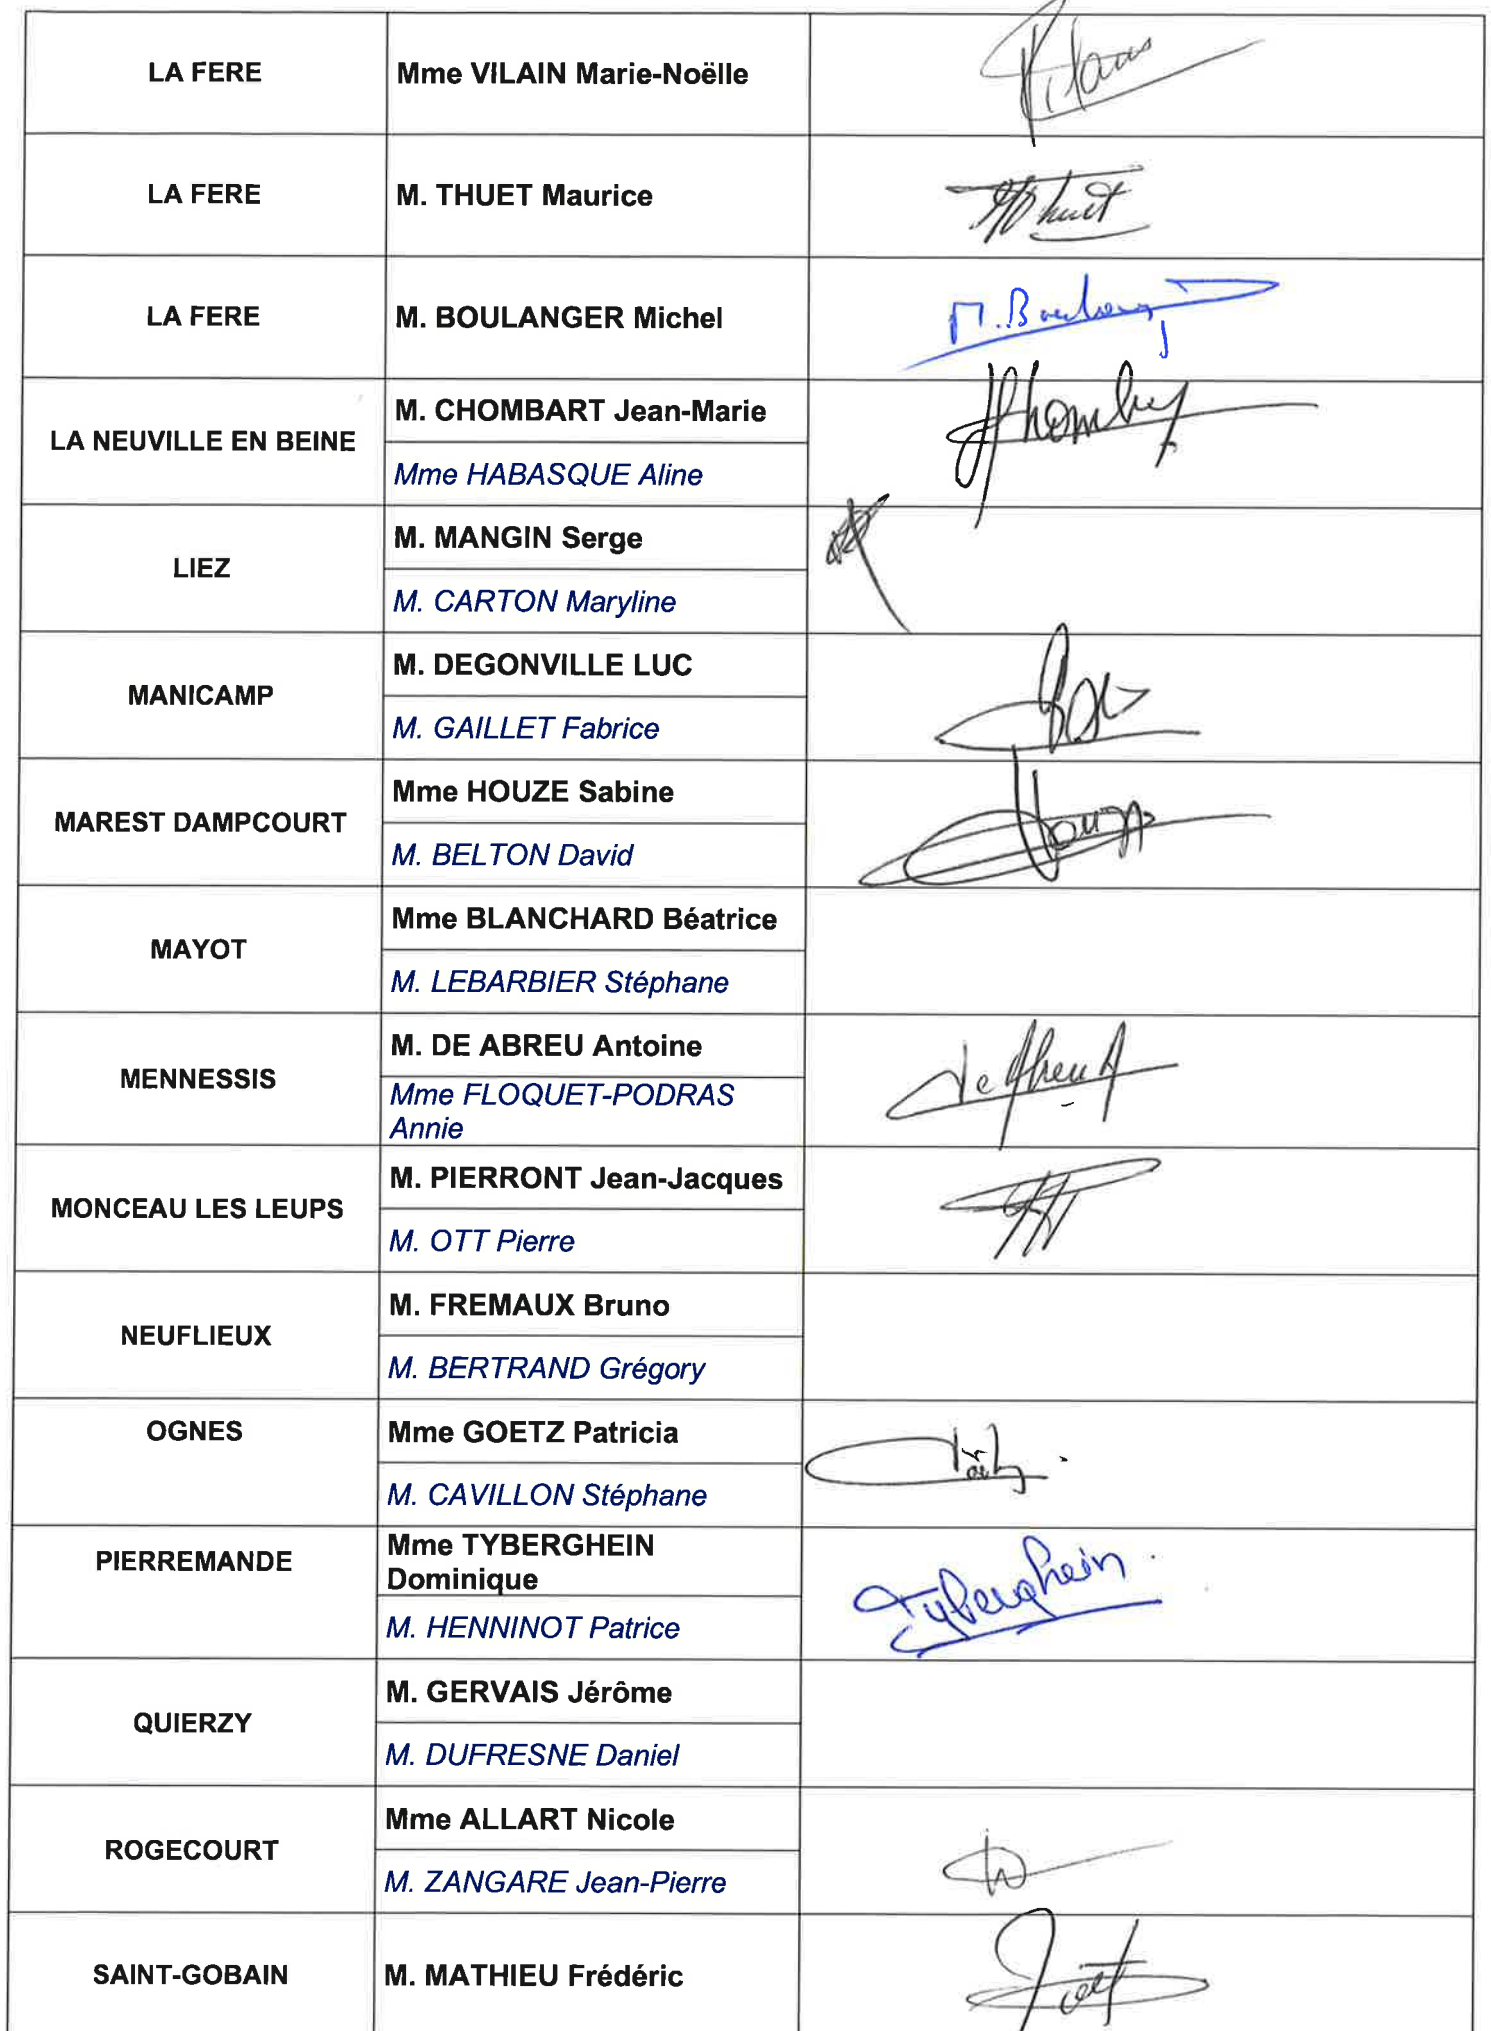 LA FERE
Mme VILAIN Marie-Noëlle
LA FERE
M. THUET Maurice
Thuet
LA FERE
M. BOULANGER Michel
LA NEUVILLE EN BEINE
M. CHOMBART Jean-Marie
Mme HABASQUE Aline
LIEZ
M. MANGIN Serge
M. CARTON Maryline
MANICAMP
M. DEGONVILLE LUC
M. GAILLET Fabrice
MAREST DAMPCOURT
Mme HOUZE Sabine
M. BELTON David
MAYOT
Mme BLANCHARD Béatrice
M. LEBARBIER Stéphane
MENNESSIS
M. DE ABREU Antoine
Mme FLOQUET-PODRAS
Annie
MONCEAU LES LEUPS
M. PIERRONT Jean-Jacques
M. OTT Pierre
NEUFLIEUX
M. FREMAUX Bruno
M. BERTRAND Grégory
OGNES
Mme GOETZ Patricia
M. CAVILLON Stéphane
PIERREMANDE
Mme TYBERGHEIN
Dominique
Tyberghein
M. HENNINOT Patrice
QUIERZY
M. GERVAIS Jérôme
M. DUFRESNE Daniel
ROGECOURT
Mme ALLART Nicole
M. ZANGARE Jean-Pierre
SAINT-GOBAIN
M. MATHIEU Frédéric